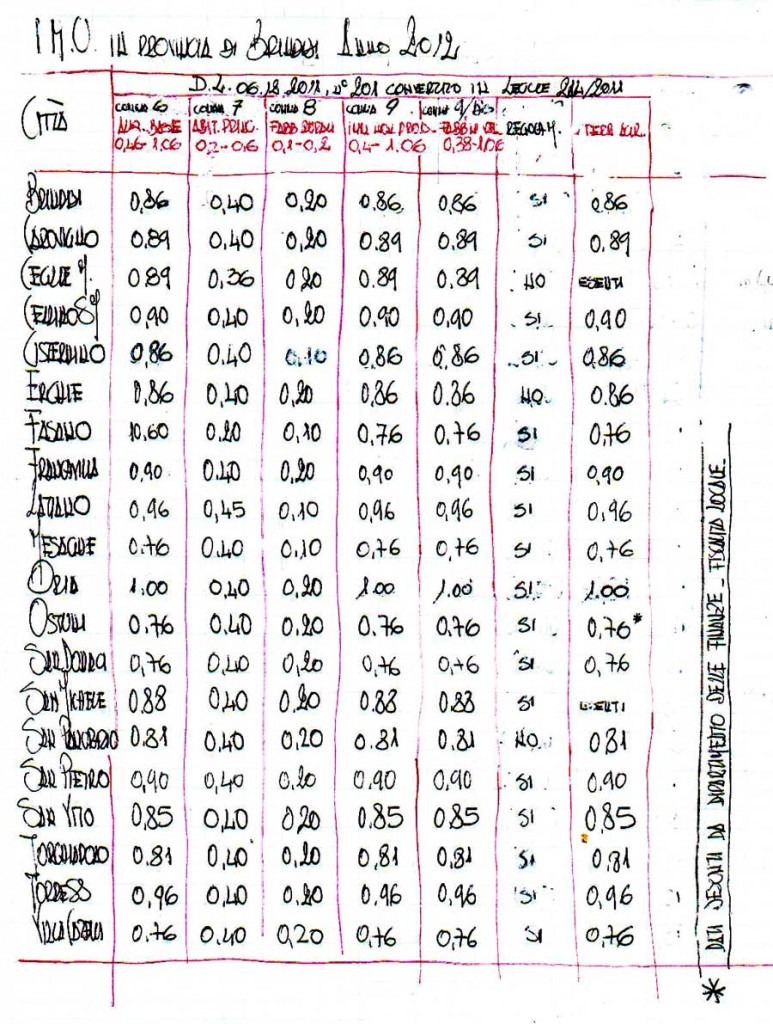 I.M.U. IN PROVINCIA DI BRINDISI ANNO 2012
D.L. 06.12.2011, N° 201 CONVERTITO IN LEGGE 214/2011
CITTÀ COMMA 6 COMMA 7 COMMA 8 COMMA 9 COMMA 9/BIS REGOLAM. TERR. AGR.
ALIQ. BASE ABIT. PRINC. FABB. RURALI IMM. NON PROD.
0,46-1.06 0,2-0,6 0,1-0,2 0,4-1.06 0,38-1.06
BRINDISI 0,86 0,40 0,20 0.86 0,86 SI 0,86
CAROVIGNO 0.89 0,40 0,20 0.89 0.89 SI 0,89
CEGLIE M. 0.89 0,36 0.20 0.89 0.89 NO ESENTI
CELLINO S.M. 0,90 0,40 0,20 0,90 0,90 SI 0,90
CISTERNINO 0,86 0.40 0,10 0,86 0,86 SI 0.86
ERCHIE 0,86 0,40 0,20 0,86 0.86 NO 0.86
FASANO 10.60 0.20 0,10 0,76 0.76 SI 0,76
FRANCAVILLA 0,90 0.40 0,20 0,90 0,90 SI 0,90
LATIANO 0,96 0,45 0,10 0,96 0,96 SI 0,96
MESAGNE 0.76 0.40 0,10 0,76 0,76 SI 0,76
ORIA 1.00 0,40 0,20 1.00 1.00 SI 1.00
OSTUNI 0.76 0,40 0,20 0.76 0,76 SI 0,76*
SAN DONACI 0,76 0,40 0,20 0,76 0,76 SI 0,76
SAN MICHELE 0.88 0,40 0,20 0.88 0.88 SI ESENTI
SAN PANCRAZIO 0.81 0,40 0,20 0.81 0.81 NO 0.81
SAN PIETRO 0,90 0,40 0,20 0.90 0,90 SI 0,90
SAN VITO 0,85 0,40 0,20 0.85 0,85 SI 0,85
TORCHIAROLO 0.81 0,40 0,20 0,81 0,81 SI 0.81
TORRE SS 0,96 0,40 0,20 0,96 0,96 SI 0,96
VILLA CASTELLI 0.76 0.40 0,20 0,76 0,76 SI 0,76
* DATI DESUNTI DA DIPARTIMENTO DELLE FINANZE - FISCALITÀ LOCALE